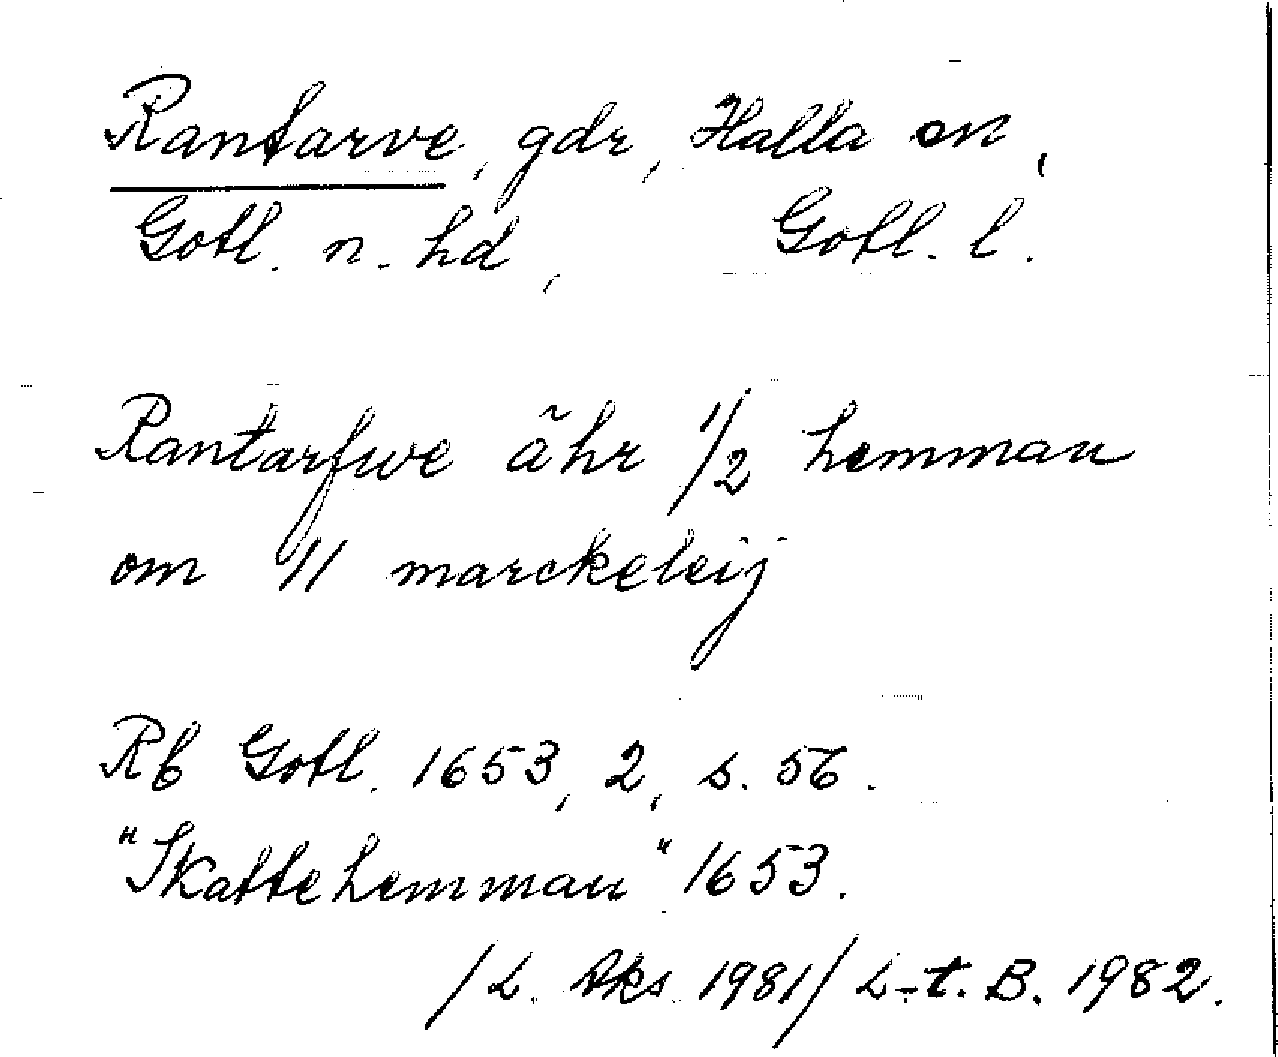 Rantarve, gdr, Halla sn,
Gotl. n. hd, Gotl. l.
Rantarfwe ähr 1/2 hemman
om 11 marckeleij
Rb Gotl. 1653, 2, s. 56.
"Skattehemman" 1653.
/L. Aks. 1981/ L-t. B. 1982.